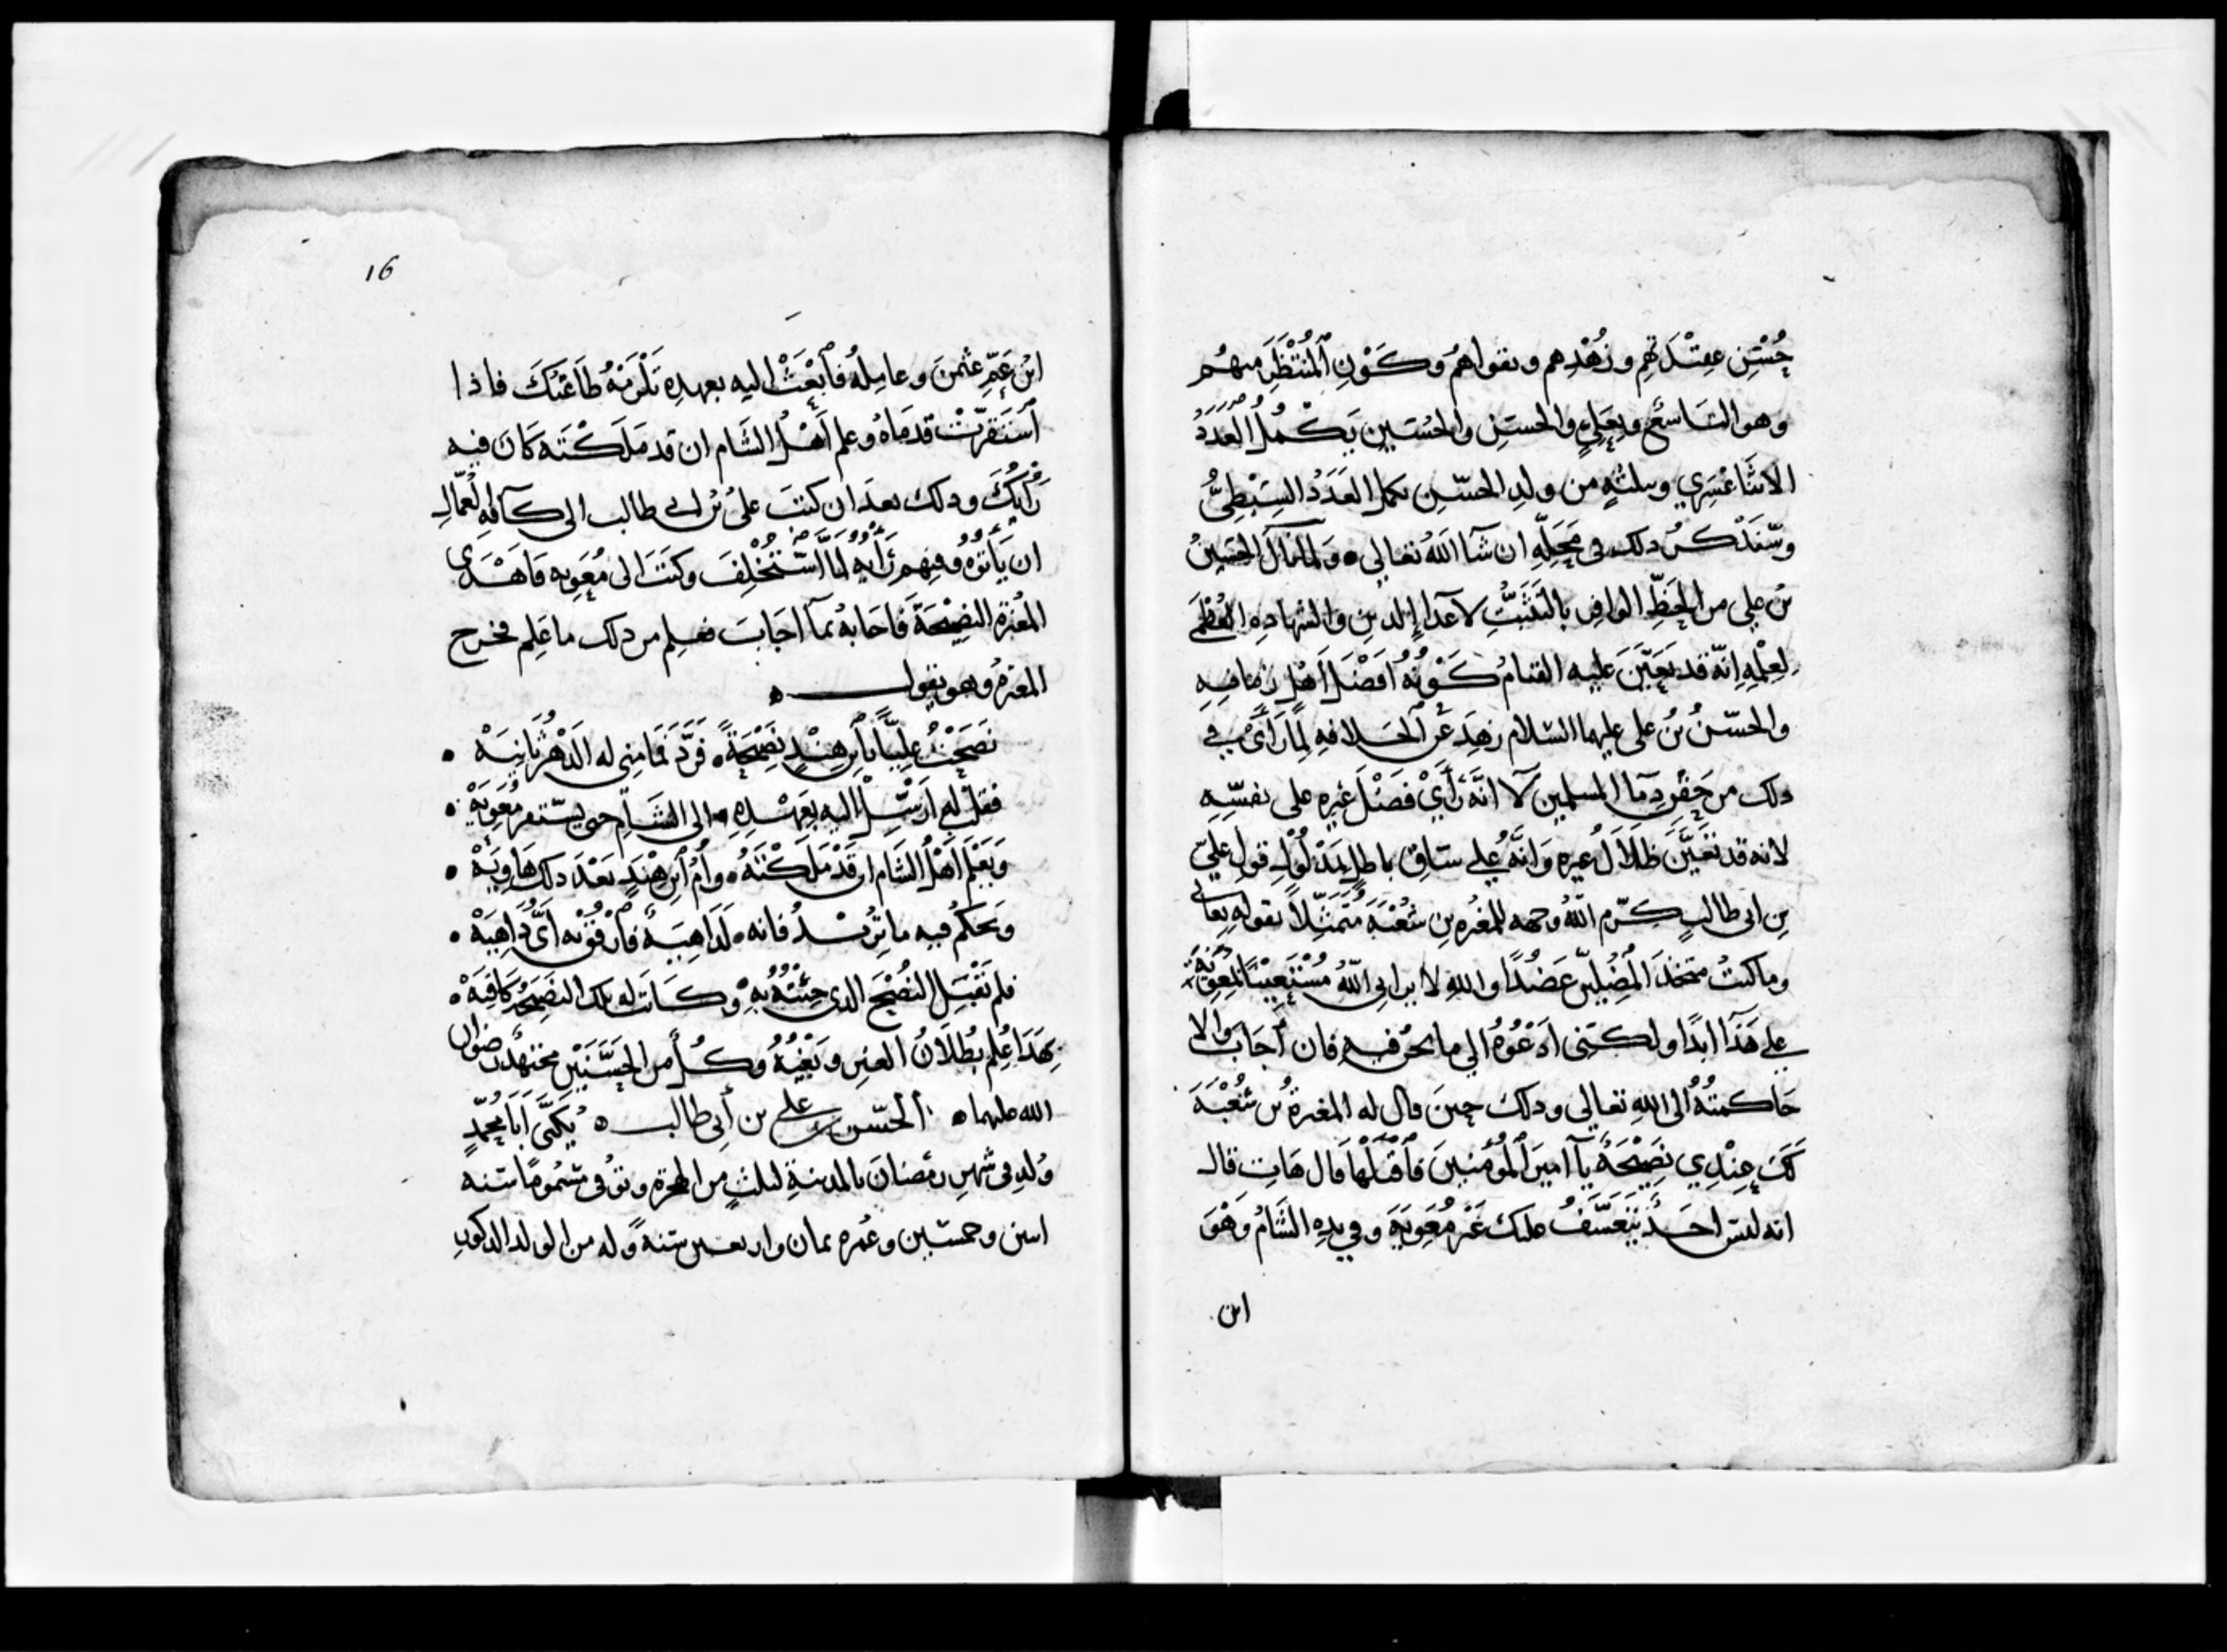 حُسْنِ عقِيْدتهِم وزُهْدِهم وتقواهُم وكَوْنِ ٱلْمُنْتَظَرِ منهُم
وهو التاسعُ وبِعَليٍ والحسَنِ والحُسَينِ يَكْمُلُ العَدَدُ
الاثنَا عَشَرِي وبثلثةٍ من ولدِ الحسَينِ يكمل العَدَدُ السِبْطِيُّ
وسَنَذْكُرُ ذلك في مَحَلِّهِ ان شآ اللهُ تعالى ٥ ولما نالَ الحسَينُ
بنُ علي من الحَظِّ الوافِر بالتَثَبُّتِ لاعدآءِ الدينِ والشهادةِ العُظْمَى
لِعِلْمِهِ اِنّه قد تعَيَّنَ عليه القيامُ كَوْنُهُ اَفْضَلَ اَهْلِ زمانِهِ
والحسَنُ بنُ علي عليهما السَلام زهِدَ عَنِ ٱلخلافةِ لِمَا رَأىَ في
ذلك من حَقْنِ دِمآ المسلمين لا انَّهُ رَأَيْ فَضْلَ غيرِه على نفسِهِ
لانه قد تعَيَّنَ ظلَالُ غيرِه وَانَّهُ علي سَاقٍ باطلٍ مَدْلُولُه قول عليّ
بنِ ابي طالبٍ كرّم اللهُ وجهه للمغيرةِ بنِ شُعْبَةَ مُتَمَثِّلاً بقولهِ تعالى
وما كنتُ متخذَ المُضِلينَ عَضُدًا واللهِ لا يراني اللهُ مُسْتَعِيْنًا بمُعويةَ
علي هَذَآ ابدًا ولكنني اَدْعُوهُ الي ما نحن فيهِ فان اَجَابَ والا
حَاكمتُهُ الى اللهِ تعالى وذلك حينَ قال له المغيرةُ بن شُعْبَةَ
لَكَ عِنْدِي نصِيْحَةٌ يآ اميرَ ٱلمُؤْمنينَ فٱقْبَلْهَا قال هَاتِ قال
انه ليس احَدٌ يتَعَسَّفُ عليك غَيْرَ مُعَويَةَ وفي يدِه الشَامُ وَهْوَ
ابن
16
ابْنُ عَمِّ عثمنَ وعامِلُهُ فٱبْعَثْ اليه بعهدِه يَلْزَمْهُ طَاعَتُكَ فاذا
ٱسْتَقَرَّتْ قدمَاهُ وعلم اَهْلُ الشَام ان قد مَلَكْتَه كَانَ فيه
رَأيُكَ وذلك بعدَ ان كتبَ عليُ بنُ ابي طالب الى كآفةِ العُمّالِ
ان يَأْتُوهُ وفيهم رَأيه لمّا اسْتُخْلِفَ وكتَبَ الى مُعَوية فَاهْدَى
المغيرةُ النصِيْحَةَ فَاجابهُ بمآ اجَابَ فعلم من ذلك ما عَلِم فخرج
المغيرةُ وهو يقول ٥
نَصَحْتُ علِيًّا فى ٱبنِ هِنْدٍ نصِيْحَةً ٠ فرَدَّ فمَا مِني له الدَهْرَ ثانِيَهْ ٠
فقلتُ له اَرْسِلْ اليه بِعَهْدِهِ ٠ الى الشَامِ حتى يستقر مُعَويَهْ ٠
وَيَعْلَمَ اَهْلُ الشَام ان قَدْ مَلَكْتَهُ ٠ واُمُ ٱبنِ هِنْدٍ بَعْدَ ذلك هَاويَهْ ٠
وتَحكمُ فيه ما تُرِيْدُ فانه ٠ لَدَاهِيَةٌ فٱرفُقْ به اَيُّ دَاهِيَهْ ٠
فلم تَقْبَل النُصْحَ الذي جِئْتُهُ بِهِ ٠ وكَانَت له تلك النصِيْحَةُ كَافِيَهْ ٠
بِهَذَا عُلِمَ بُطْلَانُ الغيرِ وبَغْيُهُ وكُلٌّ من الحَسَنَيْنِ مجتهدٌ رضوان
الله عليهما ٥ ٱلحسَن بن علي بن أبي طالب ٥ يُكَنَّى أَبَا مُحَمّدٍ
وُلدِ في شهرِ رمضانَ بالمدينةِ لثلثٍ من الهجرة وتوُفى مَسْمُومًا سَنه
اثنين وخمسين وعُمره ثمان واربعين سَنةً وله من الولد الذكورِ